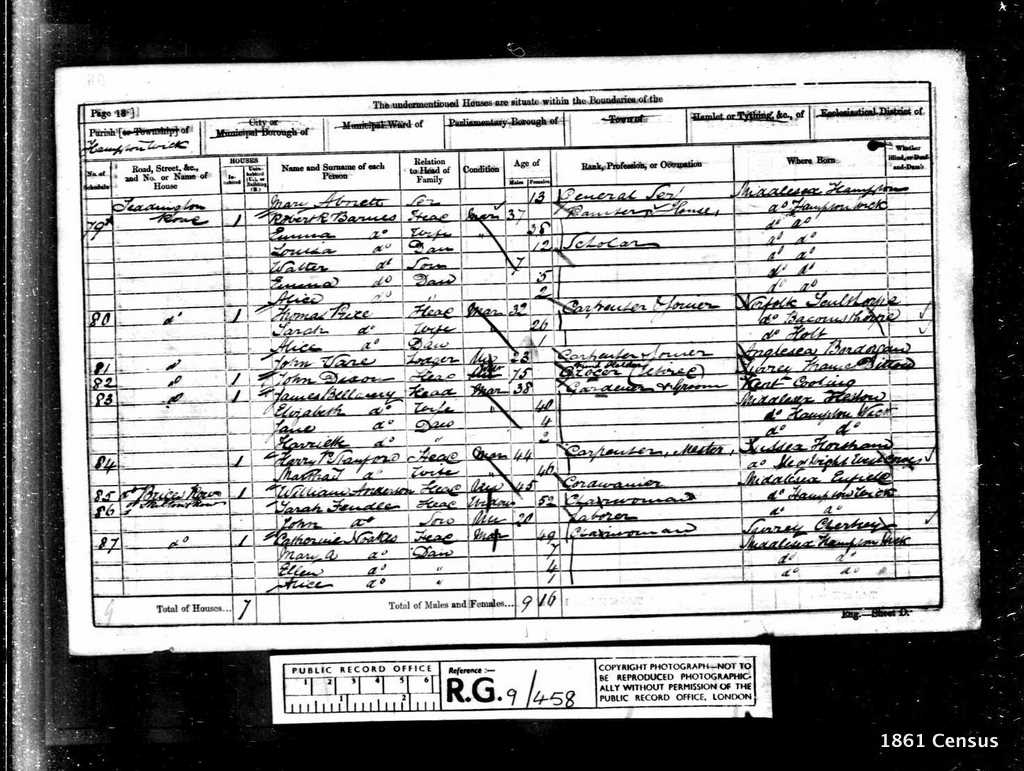 Page 18]
The undermentioned Houses are situate within the Boundaries of the
Parish [or Township] of
City or Municipal Borough of
Municipal Ward of
Parliamentary Borough of
Town of
Hamlet or Tything, &c., of
Ecclesiastical District of
Hampton Wick
No. of Schedule
Road, Street, &c., and No. or Name of House
HOUSES
Inhabited
Uninhabited (U.), or Building (B.)
Name and Surname of each Person
Relation to Head of Family
Condition
Age of
Males
Females
Rank, Profession, or Occupation
Where Born
Whether Blind, or Deaf-and-Dumb
Teddington Mary Ser 13 General Middlesex Hampton
79 Road 1 Robert R Barnes Head Mar 37 do Hampton Wick
Emma do Wife 38 do do
Louisa do Dau 12 Scholar do do
Walter do Son 7 do do
Emma do Dau 5 do do
Alice do " 2 do do
80 do 1 Thomas Head Mar 32 Carpenter & Joiner Norfolk
Sarah do Wife 26 do Baconsthorpe
Alice do Dau 1 do Holt
81 John Lodger Un 23 Carpenter & Joiner Anglesea
82 1 John Head 75 Grocer Surrey Thames Ditton
83 1 James Bellamy Head Mar 38 Gardener & Groom Kent Cooling
Elizabeth do Wife 40 Middlesex Heston
Jane do Dau 4 do Hampton Wick
Harriett do " 2 do do
84 1 Henry Head Mar 44 Carpenter, Master, Sussex Horsham
Martha do Wife 46 do
85 Row 1 William Anderson Head Un 45 Cordwainer Middlesex
86 Sarah Head Widow 52 Charwoman do Hampton Wick
John do Son Un 20 Laborer do do
87 do 1 Catherine Noakes Head Mar 49 Charwoman Surrey Chertsey
Mary A do Dau 7 Middlesex Hampton Wick
Ellen do " 4 do do
Alice do " 1 do do
Total of Houses... 7
Total of Males and Females... 9 16
Eng.—Sheet D.
PUBLIC RECORD OFFICE
1 2 3 4 5 6
1 2
Reference:—
R.G. 9/458
COPYRIGHT PHOTOGRAPH—NOT TO
BE REPRODUCED PHOTOGRAPHIC-
ALLY WITHOUT PERMISSION OF THE
PUBLIC RECORD OFFICE, LONDON
1861 Census